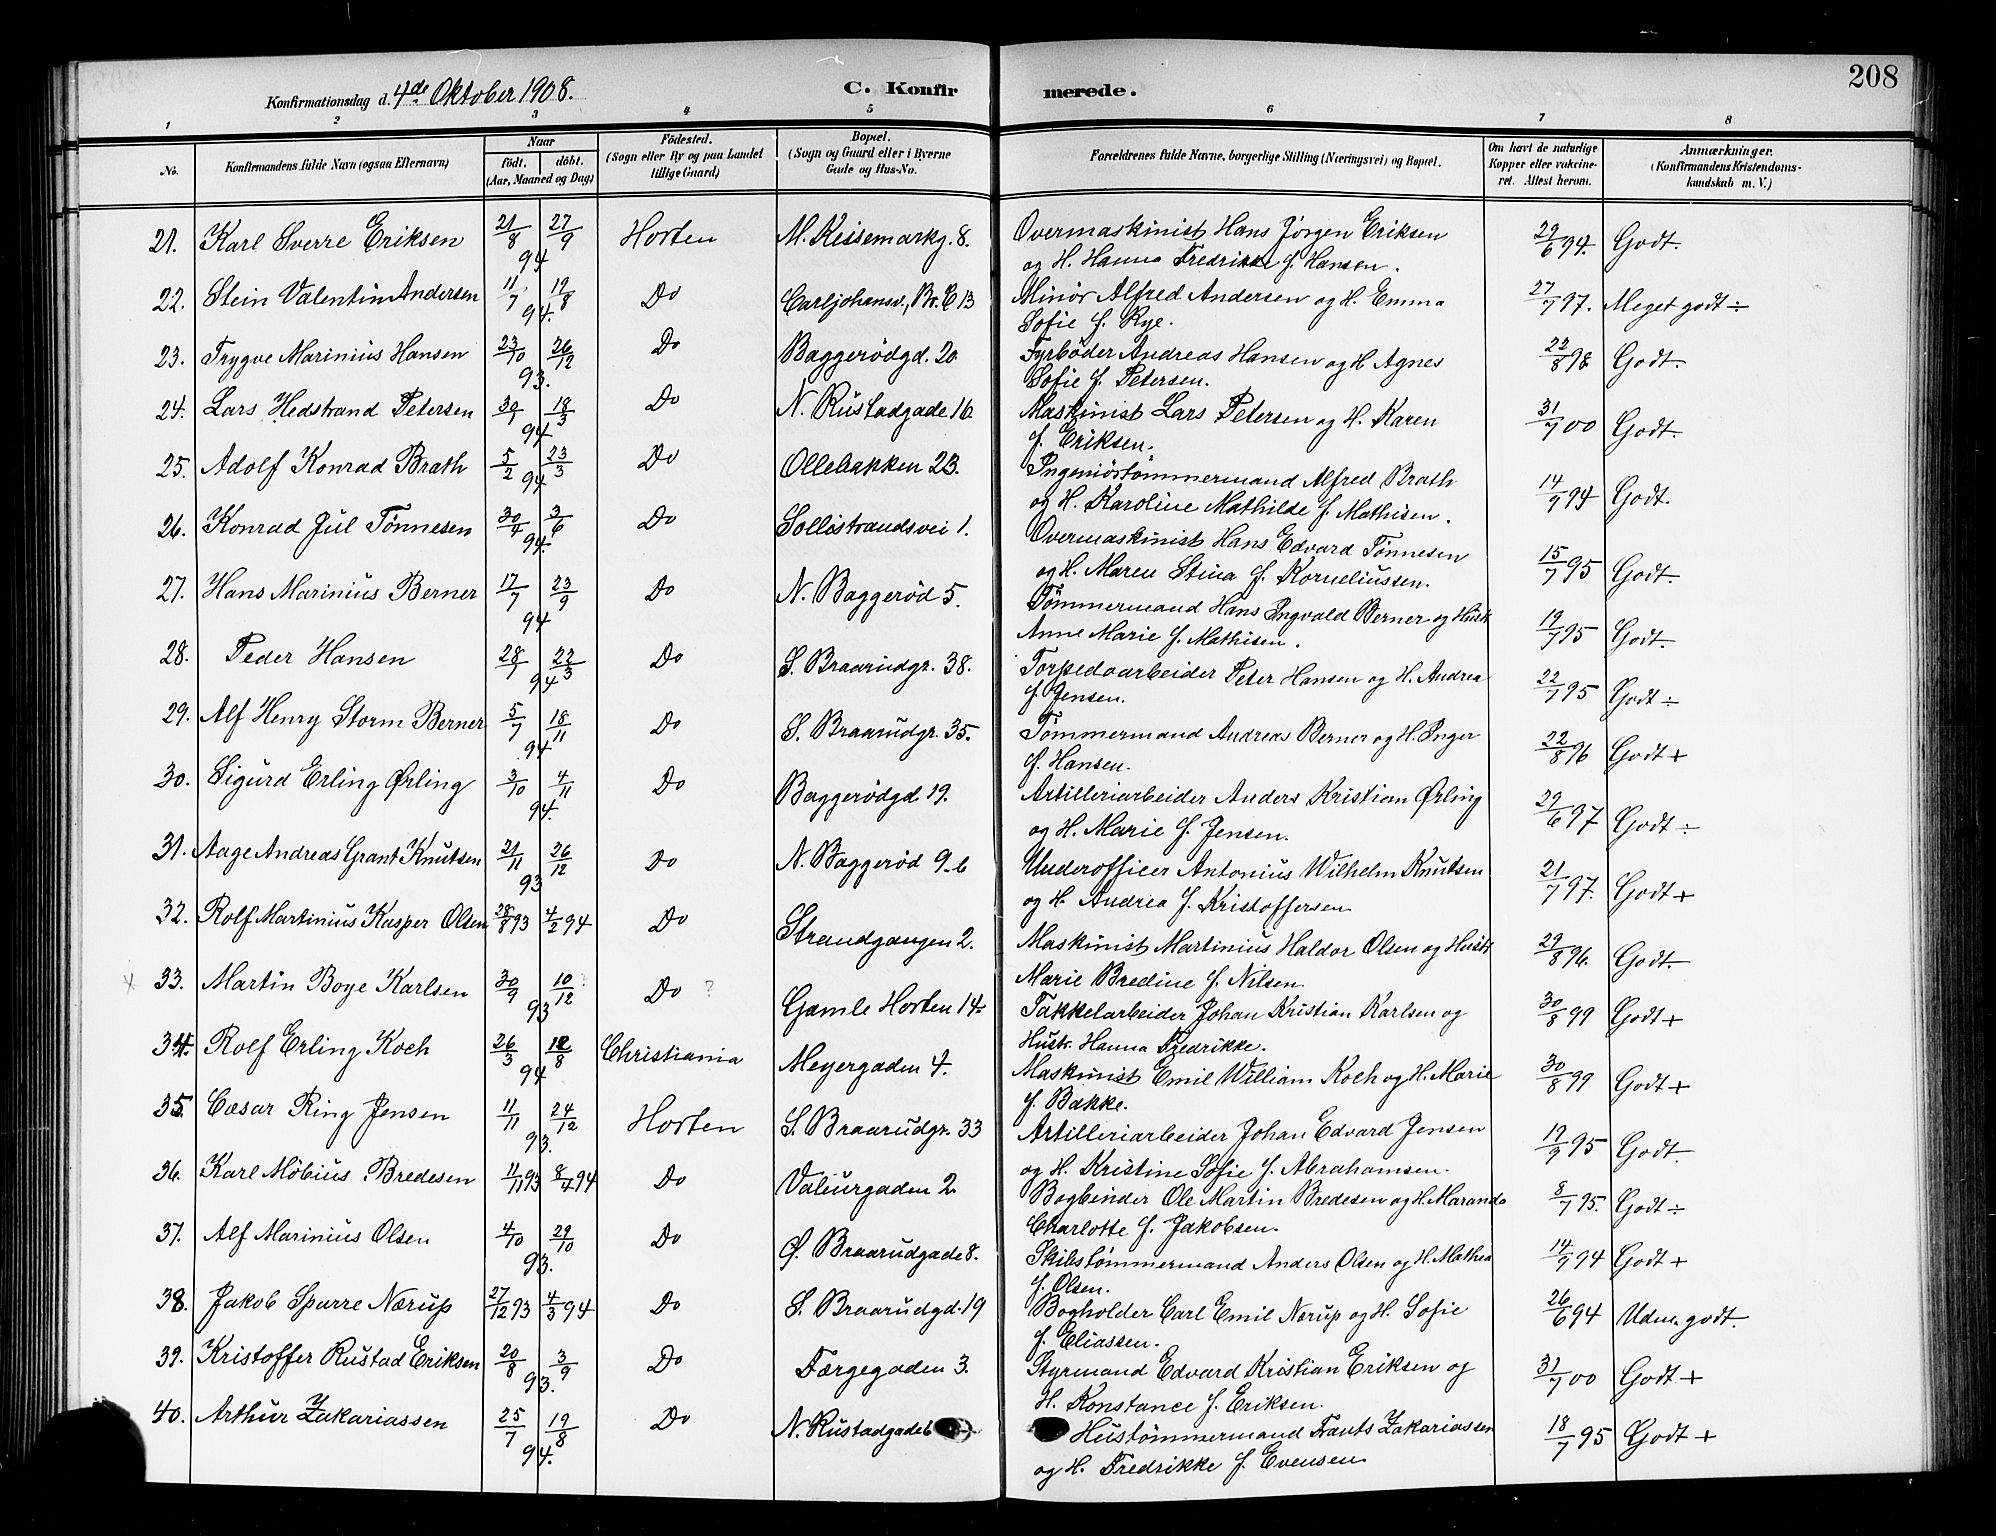 208
Konfirmationsdag d. 4de Oktober 1908. C. Konfirmerede.
1 2 3 4 5 6 7 8
No. Konfirmandens fulde Navn (ogsaa Efternavn) Naar født. døbt. (Aar, Maaned og Dag) Fødested. (Sogn eller By og paa Landet tillige Gaard) Bopæl. (Sogn og Gaard eller i Byerne Gade og Hus-No. Forældrenes fulde Navne, borgerlige Stilling (Næringsvei) og Bopæl. Om havt de naturlige Kopper eller vakcineret. Attest herom. Anmærkninger. (Konfirmandens Kristendomskundskab m. V.)
21. Karl Sverre Eriksen 21/8 27/9 94 Horten M. Keisemarkg. 8. Overmaskinist Hans Jørgen Eriksen 29/6 94. Godt.
og H. Hanna Fredrikke f. Hansen.
22. Stein Valentin Andersen 11/7 19/8 94. Do Carljohansv, Br. C 13 Minør Alfred Andersen og H. Emma 27/7 97. Meget godt ÷
Sofie f. Rye.
23. Trygve Marinius Hansen 23/10 26/12 93. Do Baggerødgd. 20 Fyrbøder Andreas Hansen og H. Agnes 22/8 98. Godt.
Sofie f. Petersen.
24. Lars Hedstrand Petersen 30/1 18/3 94 Do N. Rustadgade 16 Maskinist Lars Petersen og H. Karen 31/7 00 Godt.
f. Eriksen.
25. Adolf Konrad Brath 5/2 23/3 94 Do Ollebakken 23. Ingeniørtømmermand Alfred Brath 14/9 94 Godt.
og H. Karoline Mathilde f. Mathisen.
26. Konrad Jul Tønnesen 30/4 3/6 94. Do Sollistrandsvei 1. Overmaskinist Hans Edvard Tønnesen 15/7 95 Godt.
og H. Maren Stina f. Korneliussen.
27. Hans Marinius Berner 17/7 23/9 94 Do N. Baggerød 5. Tømmermand Hans Ingvald Berner og Hust. 19/7 95 Godt.
Anne Marie f. Mathisen.
28. Peder Hansen 28/1 22/3 94 Do S. Braarudgr. 38. Torpedoarbeider Peter Hansen og H. Andrea 22/7 95 Godt ÷
f. Jensen.
29. Alf Henry Storm Berner 5/7 18/11 94 Do S. Braarudgr. 35. Tømmermand Andreas Berner og H. Inger 22/8 96 Godt +
f. Hansen.
30. Sigurd Erling Ørling 3/10 4/11 94. Do Baggerødgd 19. Artilleriarbeider Anders Kristian Ørling 29/6 97 Godt ÷
og H. Marie f. Jensen.
31. Aage Andreas Grant Knutsen 21/11 26/12 93 Do N. Baggerød 9-b Underofficer Antonius Wilhelm Knutsen 21/7 97. Godt +
og H. Andrea f. Kristoffersen
32. Rolf Martinius Kasper Olsen 28/8 93 4/2 94 Do Strandgangen 2. Maskinist Martinius Haldor Olsen og Hustr. 29/8 96. Godt.
Marie Bredine f. Nilsen.
33. Martin Boye Karlsen 30/9 10/12 ? 93 Do ? Gamle Horten 14. Takkelarbeider Johan Kristian Karlsen og 30/8 99 Godt +
Hustr. Hanna Fredrikke.
34. Rolf Erling Koch 26/3 12/8 94 Christiania Meyergaden 4. Maskinist Emil William Koch og H. Marie 30/8 99 Godt +
f. Bakke.
35. Cæsar Ring Jensen 11/11 24/12 93. Horten S. Braarudgr. 33 Artilleriarbeider Johan Edvard Jensen 19/9 95 Godt.
og H. Kristine Sofie f. Abrahamsen.
36. Karl Möbius Bredesen 4/11 93 8/4 94 Do Valeurgaden 2 Bogbinder Ole Martin Bredesen og H. Maranda 8/7 95. Godt ÷
Charlotte f. Jakobsen.
37. Alf Marinius Olsen 4/10 29/10 93. Do Ø. Braarudgade 8. Skibstømmermand Anders Olsen og H. Mathea 14/9 94 Godt +
f. Olsen.
38. Jakob Sparre Nærup 27/12 93 4/3 94 Do S. Braarudgd. 19 Bogholder Carl Emil Nærup og H. Sofie 26/6 94 Udm. godt.
f. Eliassen.
39. Kristoffer Rustad Eriksen 20/8 3/9 93. Do Færgegaden 3. Styrmand Edvard Kristian Eriksen og 31/7 00 Godt +
H. Konstance f. Eriksen.
40. Arthur Zakariassen 25/7 19/8 94. Do N. Rustadgade 6 Hustømmermand Frants Zakariassen 18/7 95 Godt +
og H. Fredrikke f. Evensen